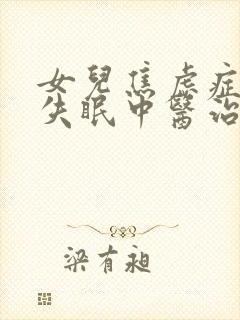 女兒焦慮症
失眠中醫治
梁有昶